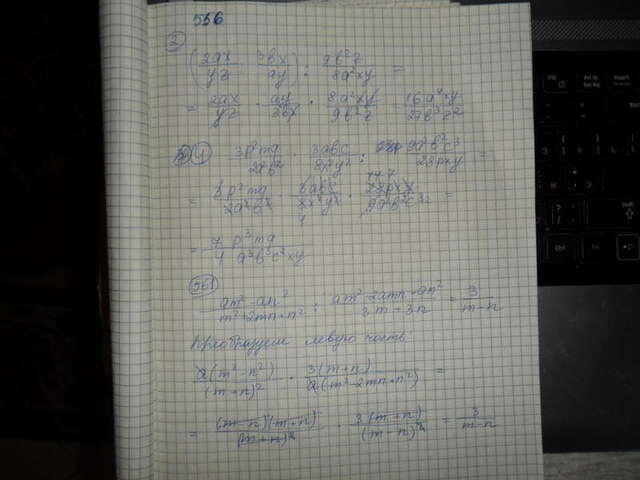 556
2) (2ax/yz : 3bx/ay) : 9b²z/8a²xy =
= 2ax/yz · ay/3bx · 8a²xy/9b²z = 16a⁴xy/27b³z²
4) 3p²mq/2a²b² · 3abc/8x²y² : 9a²b²c³/28pxy =
= 3p²mq/2a²b² · 3abc/8x²y² · 28pxy/9a²b²c³ =
= 7/4 p³mq/a³b³c²xy
561
am²-an²/m²+2mn+n² : am²-2amn+an²/3m+3n = 3/m-n
Преобразуем левую часть
a(m²-n²)/(m+n)² · 3(m+n)/a(m²-2mn+n²) =
= (m-n)(m+n)/(m+n)² · 3(m+n)/(m-n)² = 3/m-n